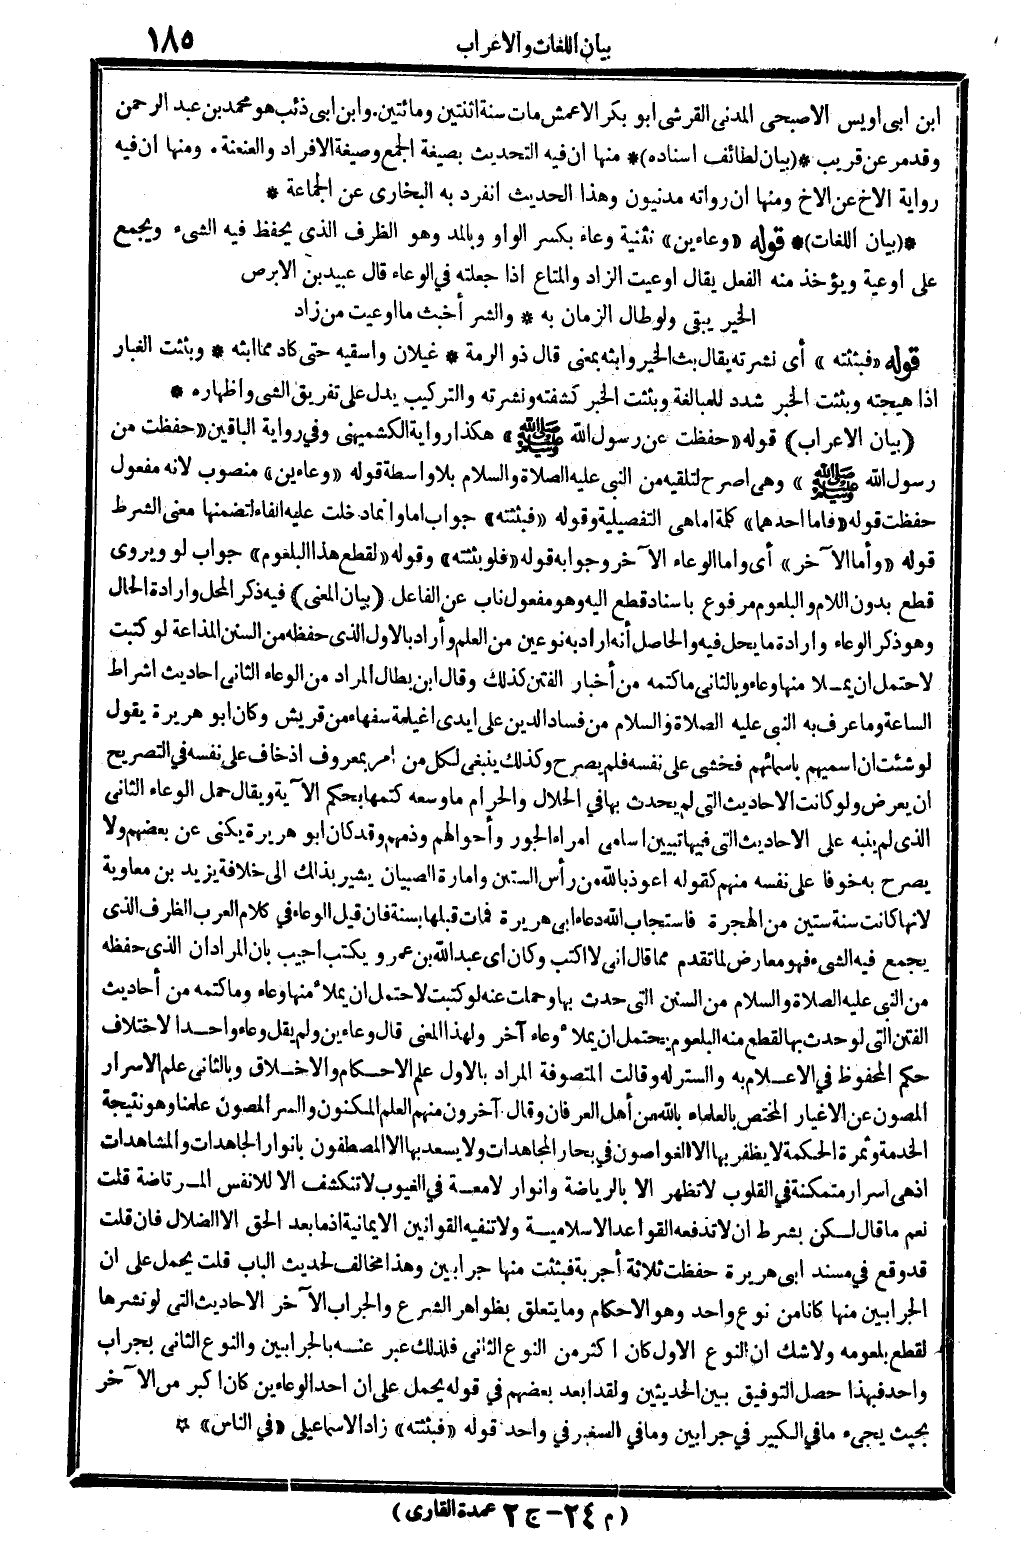 بيان اللغات والاعراب ١٨٥
ابن ابى اويس الاصبحى المدنى القرشى ابو بكر الاعمش مات سنة اثنتين ومائتين. وابن ابى ذئب هو محمد بن عبد الرحمن
وقد مر عن قريب *(بيان لطائف اسناده)* منها ان فيه التحديث بصيغة الجمع وصيغة الافراد والعنعنة. ومنها ان فيه
رواية الاخ عن الاخ ومنها ان رواته مدنيون وهذا الحديث انفرد به البخارى عن الجماعة *
*(بيان اللغات)* قوله «وعاءين» تثنية وعاء بكسر الواو وبالمد وهو الظرف الذى يحفظ فيه الشىء ويجمع
على اوعية ويؤخذ منه الفعل يقال اوعيت الزاد والمتاع اذا جعلته في الوعاء قال عبيد بن الابرص
الخير يبقى ولو طال الزمان به * والشر أخبث ما اوعيت من زاد
قوله «فبثثته» أى نشرته يقال بث الخير وابثه بمعنى قال ذو الرمة * غيلان واسقيه حتى كاد مما ابثه * وبثثت الغبار
اذا هيجته وبثثت الخبر شدد للمبالغة وبثثت الخبر كشفته ونشرته والتركيب يدل على تفريق الشى واظهاره *
(بيان الاعراب) قوله «حفظت عن رسول الله ﷺ» هكذا رواية الكشميهنى وفي رواية الباقين «حفظت من
رسول الله ﷺ» وهى اصرح لتلقيه من النبى عليه الصلاة والسلام بلا واسطة قوله «وعاءين» منصوب لانه مفعول
حفظت قوله «فاما احدهما» كلمة اما هى التفصيلية وقوله «فبثثته» جواب اما وانما دخلت عليه الفاء لتضمنها معنى الشرط
قوله «وأما الآخر» أى واما الوعاء الآخر وجوابه قوله «فلو بثثته» وقوله «لقطع هذا البلعوم» جواب لو ويروى
قطع بدون اللام والبلعوم مرفوع باسناد قطع اليه وهو مفعول ناب عن الفاعل (بيان المعنى) فيه ذكر المحل وارادة الحال
وهو ذكر الوعاء وارادة ما يحل فيه والحاصل أنه اراد به نوعين من العلم وأراد بالاول الذى حفظه من السنن المذاعة لو كتبت
لاحتمل ان يمـلا منها وعاء وبالثانى ما كتمه من أخبار الفتن كذلك وقال ابن بطال المراد من الوعاء الثانى احاديث اشراط
الساعة وما عرف به النبى عليه الصلاة والسلام من فساد الدين على ايدى اغيلمة سفهاء من قريش وكان ابو هريرة يقول
لو شئت ان اسميهم باسمائهم فخشى على نفسه فلم يصرح وكذلك ينبغى لكل من امر بمعروف اذ خاف على نفسه في التصريح
ان يعرض ولو كانت الاحاديث التى لم يحدث بها في الحلال والحرام ما وسعه كتمها بحكم الآية ويقال حمل الوعاء الثانى
الذى لم ينبه على الاحاديث التى فيها تبيين اسامى امراء الجور وأحوالهم وذمهم وقد كان ابو هريرة يكنى عن بعضهم ولا
يصرح به خوفا على نفسه منهم كقوله اعوذ بالله من رأس الستين وامارة الصبيان يشير بذالك الى خلافة يزيد بن معاوية
لانها كانت سنة ستين من الهجرة فاستجاب الله دعاء ابى هريرة فمات قبلها بسنة فان قيل الوعاء في كلام العرب الظرف الذى
يجمع فيه الشىء فهو معارض لما تقدم مما قال انى لا اكتب وكان اى عبد الله بن عمرو يكتب اجيب بان المراد ان الذى حفظه
من النبى عليه الصلاة والسلام من السنن التى حدث بها وحملت عنه لو كتبت لاحتمل ان يملأ منها وعاء وما كتمه من أحاديث
الفتن التى لو حدث بها لقطع منه البلعوم يحتمل ان يملأ وعاء آخر ولهذا المعنى قال وعاءين ولم يقل وعاء واحـدا لاختلاف
حكم المحفوظ في الاعـلام به والستر له وقالت المتصوفة المراد بالاول علم الاحـكام والاخـلاق وبالثانى علم الاسرار
المصون عن الاغيار المختص بالعلماء بالله من أهل العرفان وقال آخرون منهم العلم المكنون والسر المصون علمنا وهو نتيجة
الخدمة وثمرة الحكمة لا يظفر بها الا الغواصون في بحار المجاهدات ولا يسعد بها الا المصطفون بانوار المجاهدات والمشاهدات
اذ هى اسرار متمكنة في القلوب لا تظهر الا بالرياضة وانوار لامعـة في الغيوب لا تنكشف الا للانفس المـرتاضة قلت
نعم ما قال لـكن بشرط ان لا تدفعه القواعد الاسلاميـة ولا تنفيه القوانين الايمانية اذ ما بعد الحق الا الضلال فان قلت
قد وقع في مسند ابى هريرة حفظت ثلاثة أجربة فبثثت منها جرابين وهذا مخالف لحديث الباب قلت يحمل على ان
الجرابين منها كانا من نوع واحد وهو الاحكام وما يتعلق بظواهر الشرع والجراب الآخر الاحاديث التى لو نشرها
لقطع بلعومه ولا شك ان النوع الاول كان اكثر من النوع الثانى فلذلك عبر عنـه بالجرابين والنوع الثانى بجراب
واحد فبهذا حصل التوفيق بين الحديثين ولقد ابعد بعضهم في قوله يحمل على ان احد الوعاءين كان اكبر من الآخر
بحيث يجىء ما في الكبير في جرابين وما في الصغير في واحد قوله «فبثثته» زاد الاسماعيلى «في الناس» ☆
(م ٢٤ – ج ٢ عمدة القارى)